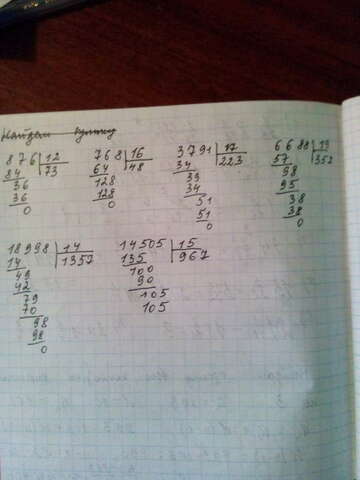 Найдем
876 12 768 16 3791 17 6688 19
84 73 64 48 34 223 57 352
36 128 39 98
36 128 34 95
0 0 51 38
51 38
0 0
18998 14 14505 15
14 1357 135 967
49 100
42 90
79 105
70 105
98
98
0